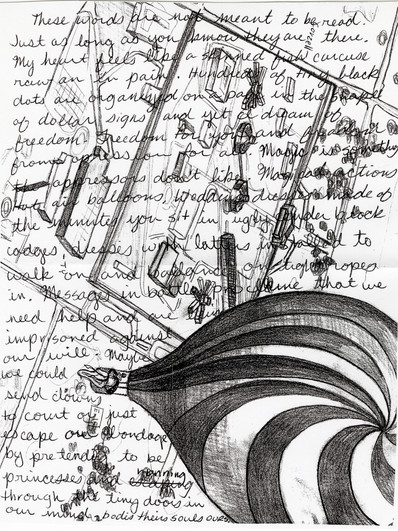 These words are not meant to be read.
Just as long as you know they are there.
My heart feels like a skinned fish carcuse
raw an in pain. Hundreds of tiny black
dots are organized on a page in the shape
of dollar signs and yet a dream of
freedom. Freedom for you and freedom
from oppression for all. Magic is something
the oppressors don't like. Mag actions
hot air balloons. Wedding dresses made of
the minute you sit in ugly under block
cadges, dresses with to
walk on and on tight ropes
in. Messages in bottles proclaime that we
need help and are
imprisoned against
our will. Maybe
we could
send clowns
to court or just
escape our bondage
by pretending to be
princesses and running
through the tiny doors in
our minds. bodis theirs souls ours.